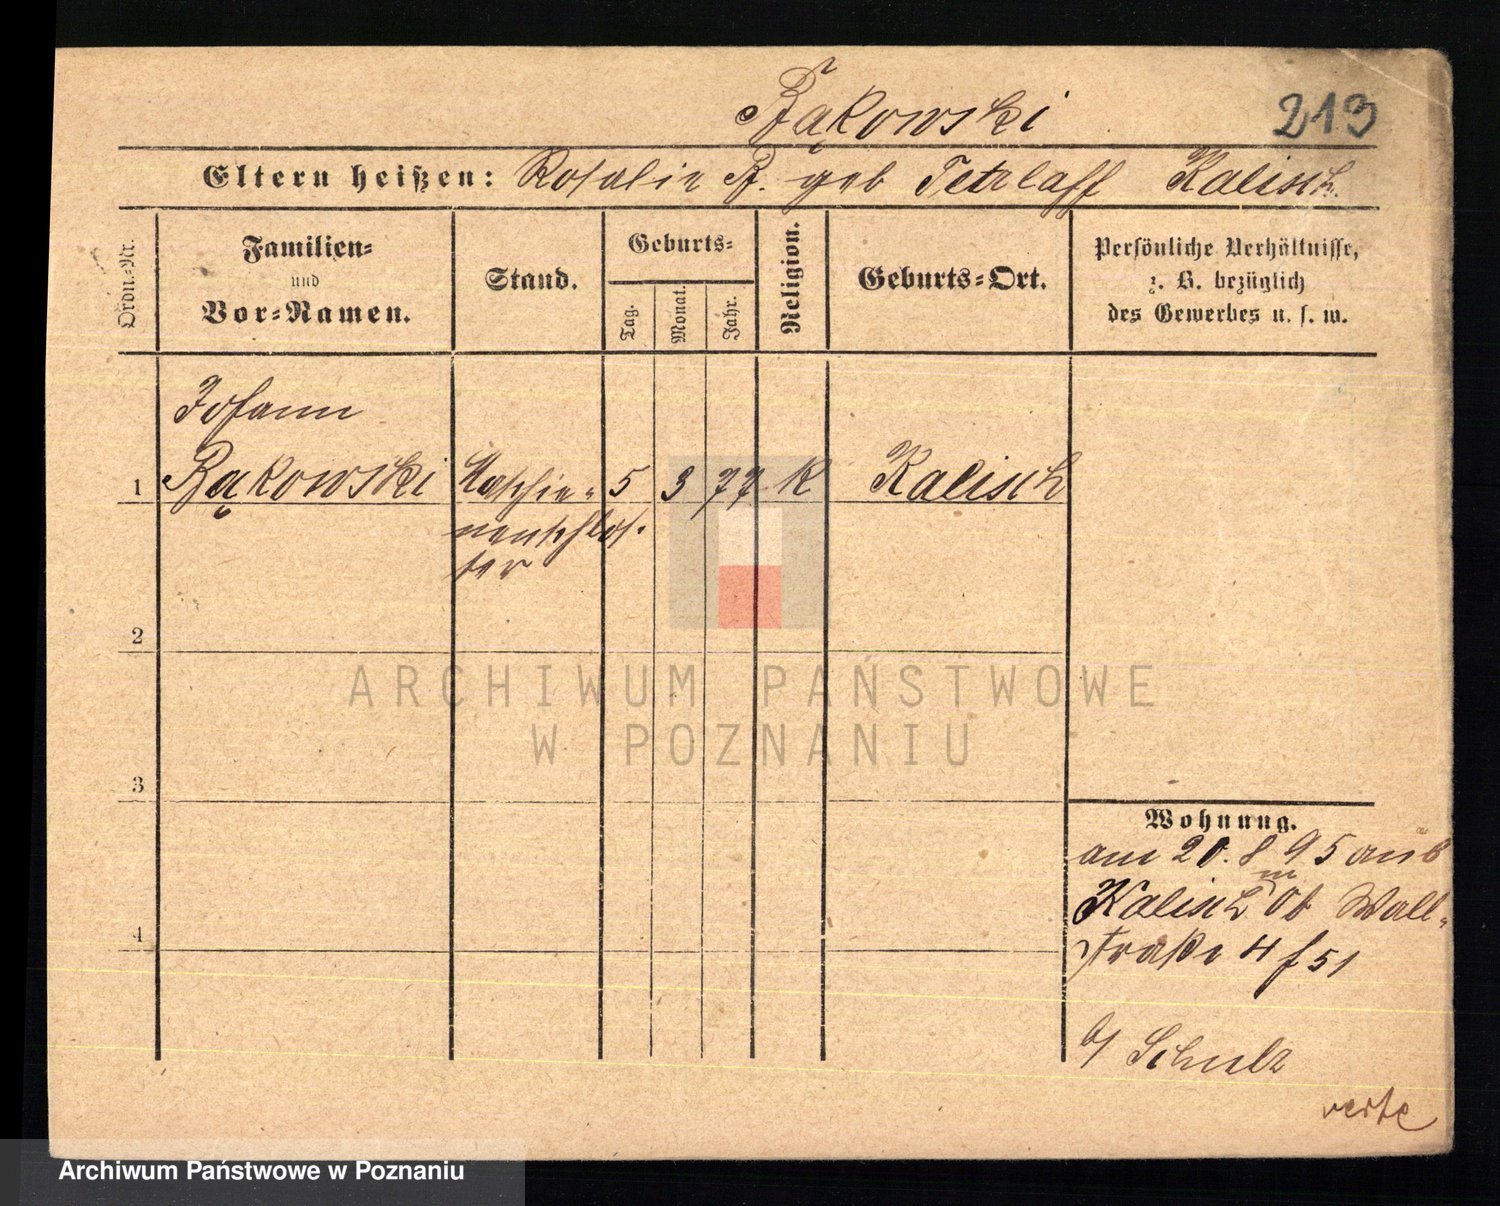 Bąkowski
213
Eltern heißen: Rosalie B. geb Tetzlaff Kalisch.
Ordn.-Nr.
Familien-
und
Vor-Namen.
Stand.
Geburts-
Tag.
Monat.
Jahr.
Religion.
Geburts-Ort.
Persönliche Verhältnisse,
z. B. bezüglich
des Gewerbes u. s. w.
Johann
1 Bąkowski Maschie- 5 3 77 K Kalisch
nenschlos-
ser
2
ARCHIWUM PAŃSTWOWE
W POZNANIU
3
Wohnung.
am 20. 8 95 aus
Kalisch Ob Wall-
straße 4 f 51
4
b/ Schulz
verte
Archiwum Państwowe w Poznaniu